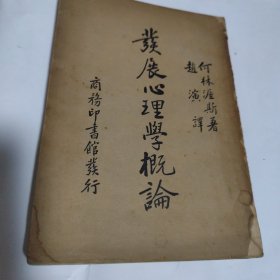 何林渥斯著
趙演譯
發展心理學概論
商務印書館發行